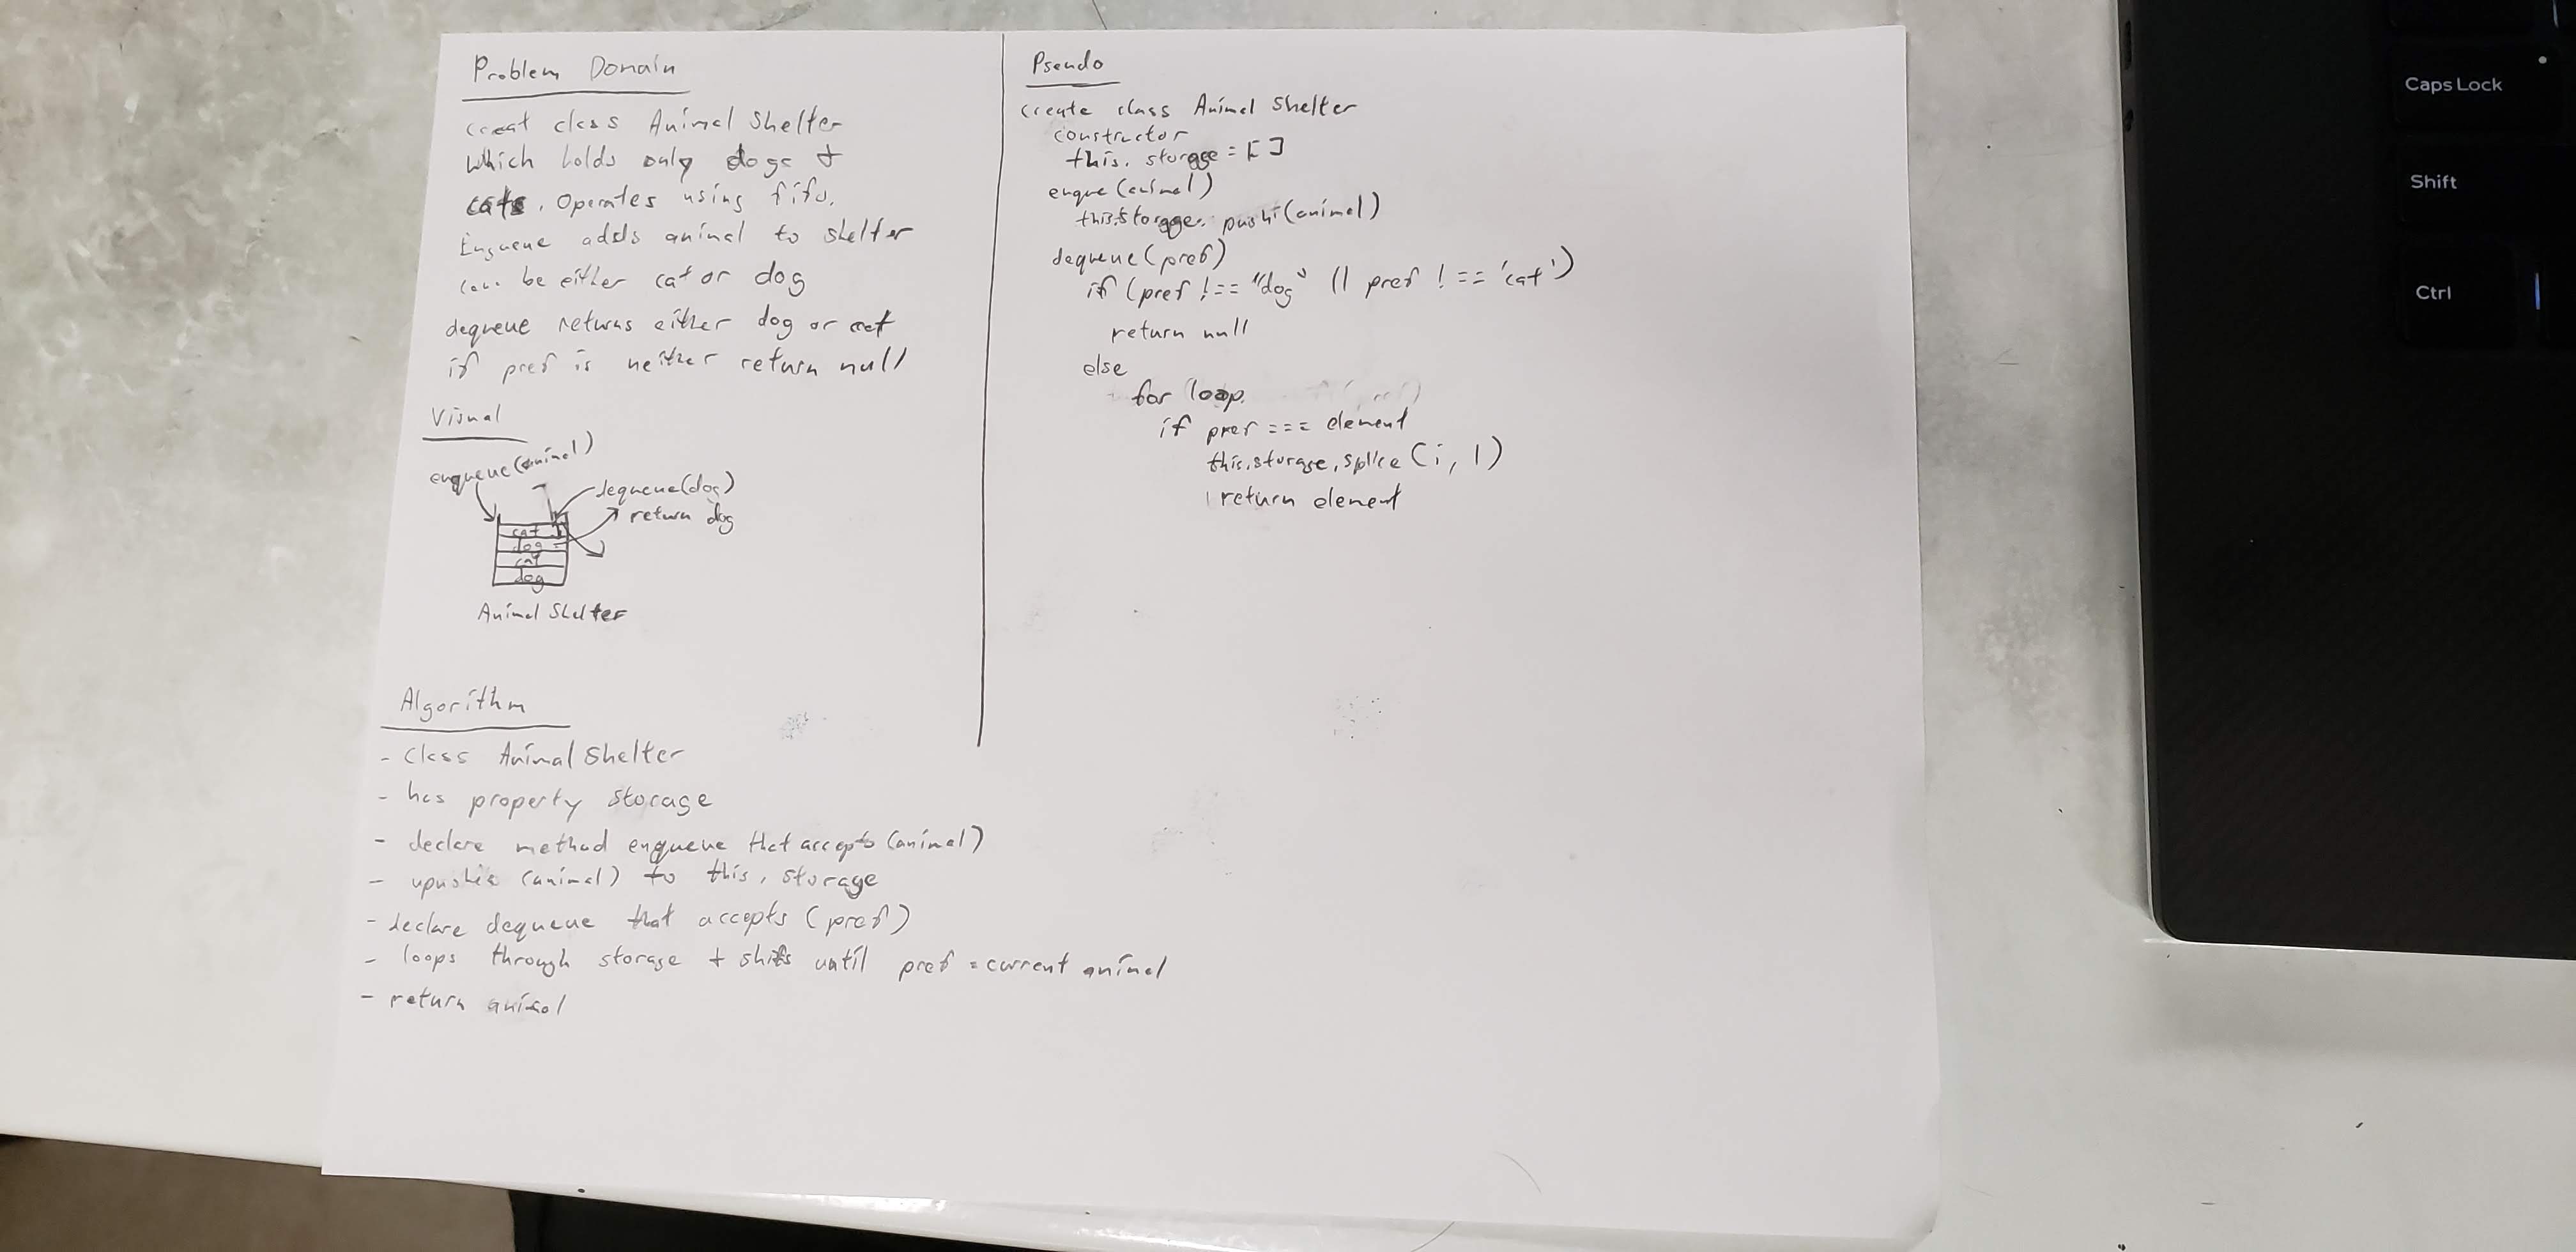 Problem Domain
Creat class Animal Shelter
Which holds only dogs +
cats. Operates using fifo.
Enqueue adds animal to shelter
can be either cat or dog
dequeue returns either dog or cat
if pref is neither return null
Visual
enqueue(animal)
dequeue(dog)
return dog
cat
dog
cat
dog
Animal Shelter
Algorithm
- class AnimalShelter
- has property storage
- declare method enqueue that accepts (animal)
- (animal) to this.storage
- declare dequeue that accepts (pref)
- loops through storage + shifts until pref = current animal
- return animal
Pseudo
create class Animal Shelter
constructor
this.storage = []
enque(animal)
this.storage.push(animal)
dequeue(pref)
if (pref !== "dog" || pref !== 'cat')
return null
else
for loop
if pref === element
this.storage.splice(i, 1)
return element
Caps Lock
Shift
Ctrl